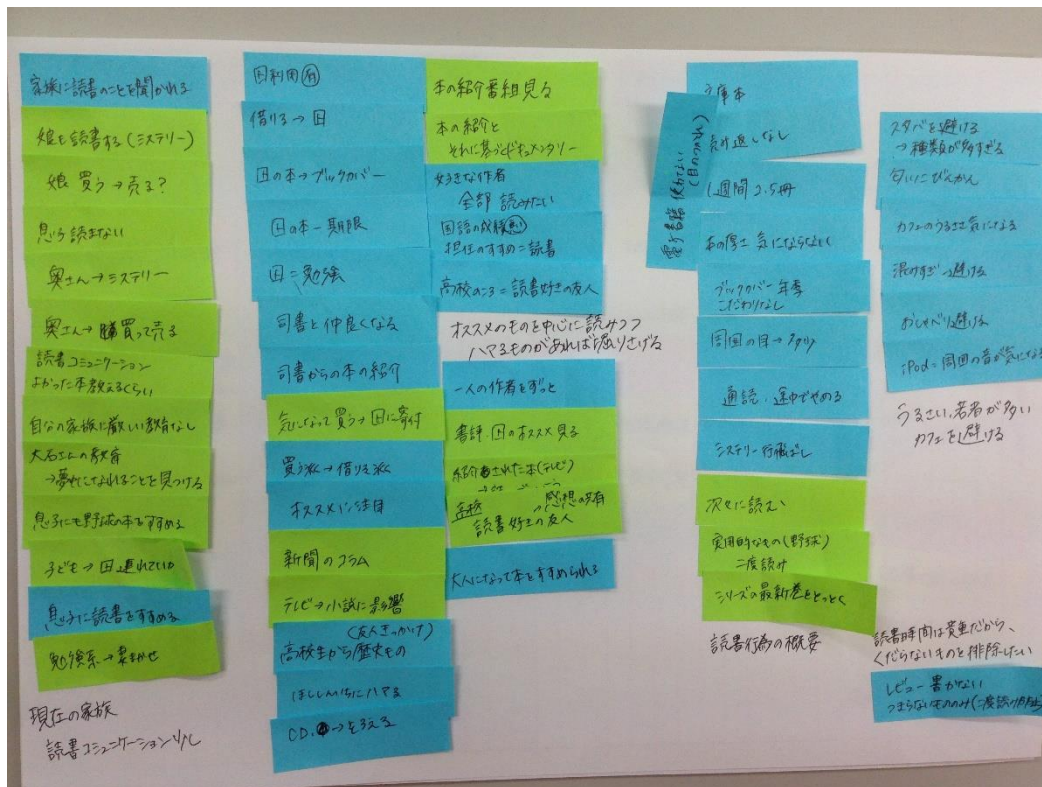 家族に読書のことを聞かれる
娘も読書する(ミステリー)
娘 買う→売る?
息子 読まない
奥さん→ミステリー
奥さん→購買って売る
読書コミュニケーション
よかった本教えるくらい
自分の家族に厳しい教育なし
大石さんの教育
→夢中になれることを見つける
息子にも野球の本をすすめる
子ども→図 連れていか
息子に読書をすすめる
勉強系→妻まかせ
現在の家族
読書コミュニケーション少し
図利用 有
借りる→図
図の本→ブックカバー
図の本-期限
図=勉強
司書と仲良くなる
司書からの本の紹介
気になって買う→図に寄付
買う派→借りる派
オススメに注目
新聞のコラム
テレビ→小試に影響
(友人きっかけ)
高校生から歴史もの
ほししんいちにハマる
CD、→そろえる
本の紹介番組見る
本の紹介と
それに基づくドキュメンタリー
好きな作者
全部 読みたい
国語の成績 悪
担任のすすめ=読書
高校のころ=読書好きの友人
オススメのものを中心に読みつつ
ハマるものがあれば掘りさげる
一人の作者をずっと
書評、図のオススメ見る
紹介された本(テレビ)
高校 →感想の共有
読書好きの友人
大人になって本をすすめられる
電子書籍 使わない
(目のつかれ)
文庫本
読み返しなし
1週間 2.5冊
本の厚さ 気にならない
ブックカバー 年季
こだわりなし
周囲の目→
通読、途中でやめる
ミステリー行飛ばし
次々に読む
実用的なもの(野球)
二度読み
シリーズの最新巻をとっとく
読書行為の概要
スタバを避ける
→種類が多すぎる
匂いにびんかん
カフェのうるささ気になる
混みすぎ→避ける
おしゃべり避ける
iPod=周囲の音が気になる
うるさい、若者が多い
カフェを避ける
読書時間は貴重だから、
くだらないものを排除したい
レビュー書かない
つまらないもののみ(二度読みかため)